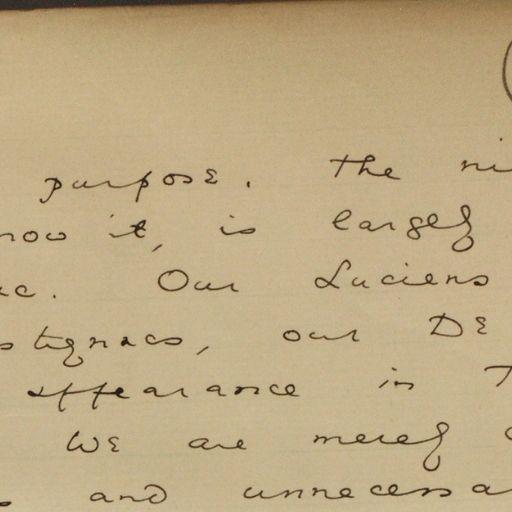 purpose. The ni
now it, is largely
ac. Our Luciens
stignacs, our DE
appearance in
WE are merely
and unnecessa